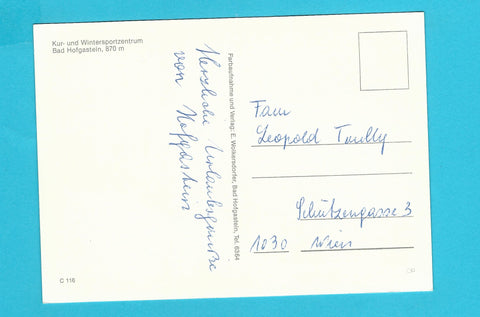 Kur- und Wintersportzentrum
Bad Hofgastein, 870 m
Herzliche Urlaubsgrüße
von Hofgastein
Farbaufnahme und Verlag: E. Wolkersdorfer, Bad Hofgastein, Tel. 6354
Fam
Leopold
Schützengasse 3
1030 Wien
C 116